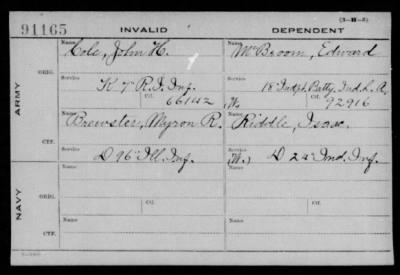 (3-11-3)
91165 INVALID DEPENDENT
ARMY
NAVY
ORIG.
CTF.
ORIG.
CTF.
Name Cole, John H.
Name McBroom, Edward
Service K 7 R.I. Inf.
Service 18" Indpt Batty. Ind. L. A.
Ctf. 66142
(W.) Ctf. 92916
Name Brewster, Myron R.
Name Riddle, Isaac
Service D 96" Ill. Inf.
Service (W.) D 24" Ind. Inf.
Name
Name
Service
Service
Ctf.
Ctf.
Name
Name
Service
Service